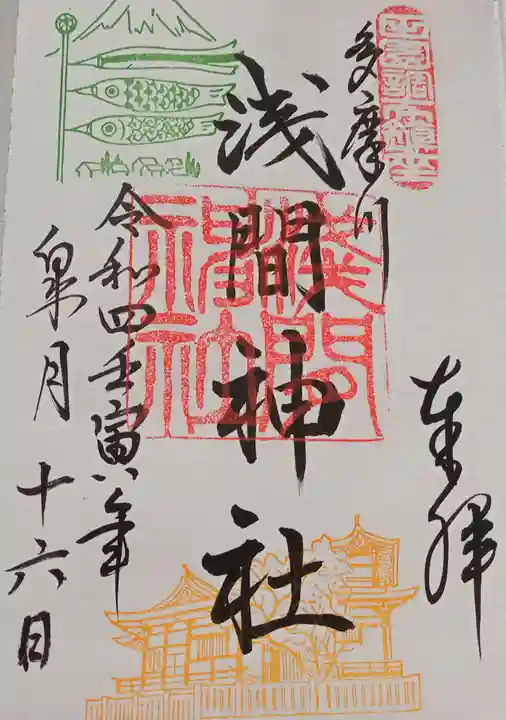 奉拝
多摩川
浅間神社
令和四壬寅年
皐月十六日
浅間神社